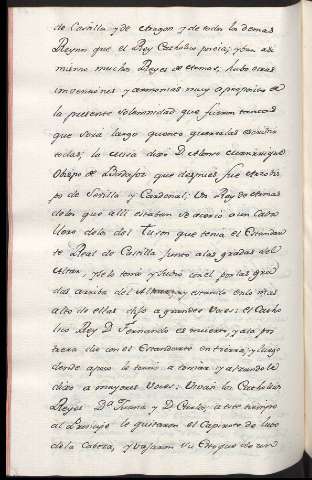 de Castilla, y de Aragon, y de todos los demas
Reynos que el Rey Catholico poseia; y tan asi
mismo muchos Reyes de Armas, hubo otras
invenciones y ceremonias muy a proposito de
la presente solemnidad que fueron tantas
que será largo quererlas escribir
todas; la misa dijo D. Alonso Manrrique
Obispo de Badajoz que despues fue Arzobis
po de Sevilla y Cardenal; Un Rey de Armas
delos que alli estaban se acercó a un Caba
llero de la del Tuson que tenia el Estandar
te Real de Castilla junto a las gradas del
Altar, y se lo tomó y subió con el por las gra
das arriba del Altar, y estando en lo mas
alto de ellas dijo a grandes voces: el Catho
lico Rey D. Fernando es muerto, y a la pos
trera dio con el Estandarte en tierra; y luego
donde a poco le tornó a tomar y alzandole
dixo a mayores voces: Vivan los Catholicos
Reyes D.ª Juana y D. Carlos, a este tiempo
al Principe le quitaron el Capirote de luto
de la Cabeza, y bajaron su Estoque de un